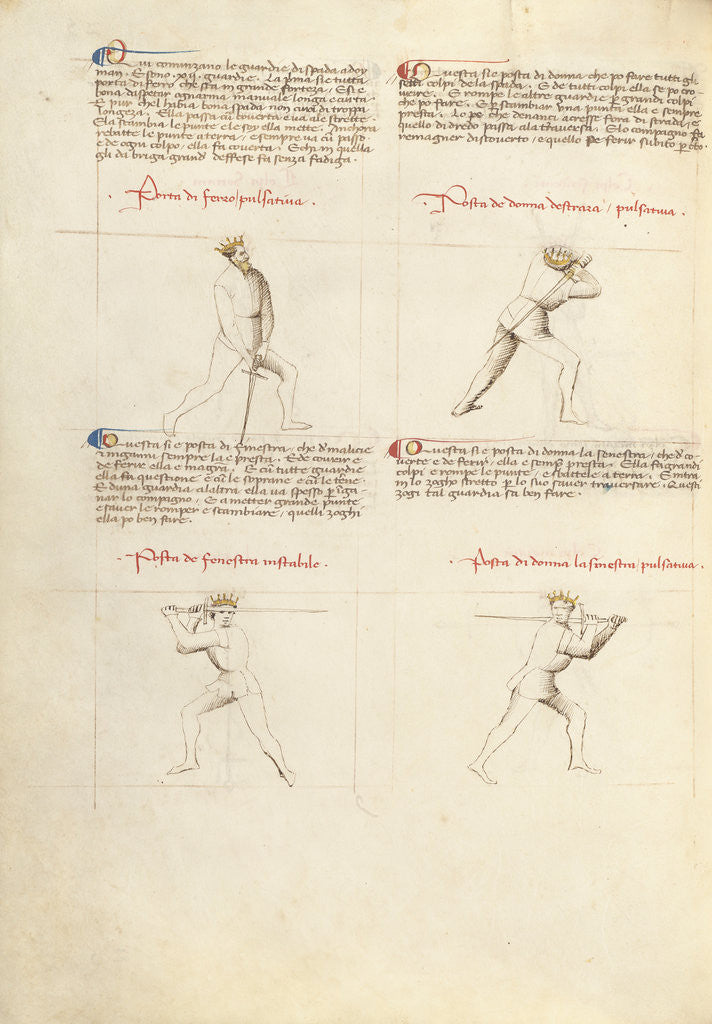 Qui cominzano le guardie di spada a doy
man. E sono xij guardie. La prima sie tutta
porta di ferro che sta in grande forteza. E si e
bona di spetar ogn'arma manuale longa e curta
E pur che l'habia bona spada non cura di troppa
longeza. Ella passa cu coverta e va ale strette.
Ela scambia le punte e le soy ella mette. Anchora
rebatte le punte a terra / e sempre va cu passo
e de ogni colpo / ella fa coverta. E chi in quella
gli da briga grand' deffese fa senza fadiga.
Porta di ferro / pulsativa.
Questa si e posta di donna che po fare tutti gli
setti colpi de la spada. E de tutti colpi ella se po cro-
vrire. E rompe le altre guardie p grandi colpi
che po fare. E p scambiar una punta ella e sempre
presta. Lo pe che denanci acresse fora di strada / e
quello di dredo passa ala traversa. E lo compagno fa
remagner discoverto / e quello po ferir subito p cto.
Posta de donna destraza / pulsativa.
Questa si e posta di finestra / che d' malicie
e inganni sempre la e presta. E de covrir e
de ferir ella e magra. E cu tutte guardie
ella fa questione e cu le soprane e cu le terene.
E d'una guardia a l'altra ella va spesso p inga-
nar lo compagno. E a metter grande punte
e saver le romper e scambiare / quelli zoghi
ella po ben fare.
Posta de fenestra instabile.
Questa si e posta di donna la senestra / che d' co-
verte e de ferir / ella e semp presta. Ella fa grandi
colpi e rompe le punte / e sbattele a terra. E intra
in lo zogho stretto p lo suo saver traversare. Questi
zogi tal guardia sa ben fare.
Posta di donna la sinestra / pulsativa.